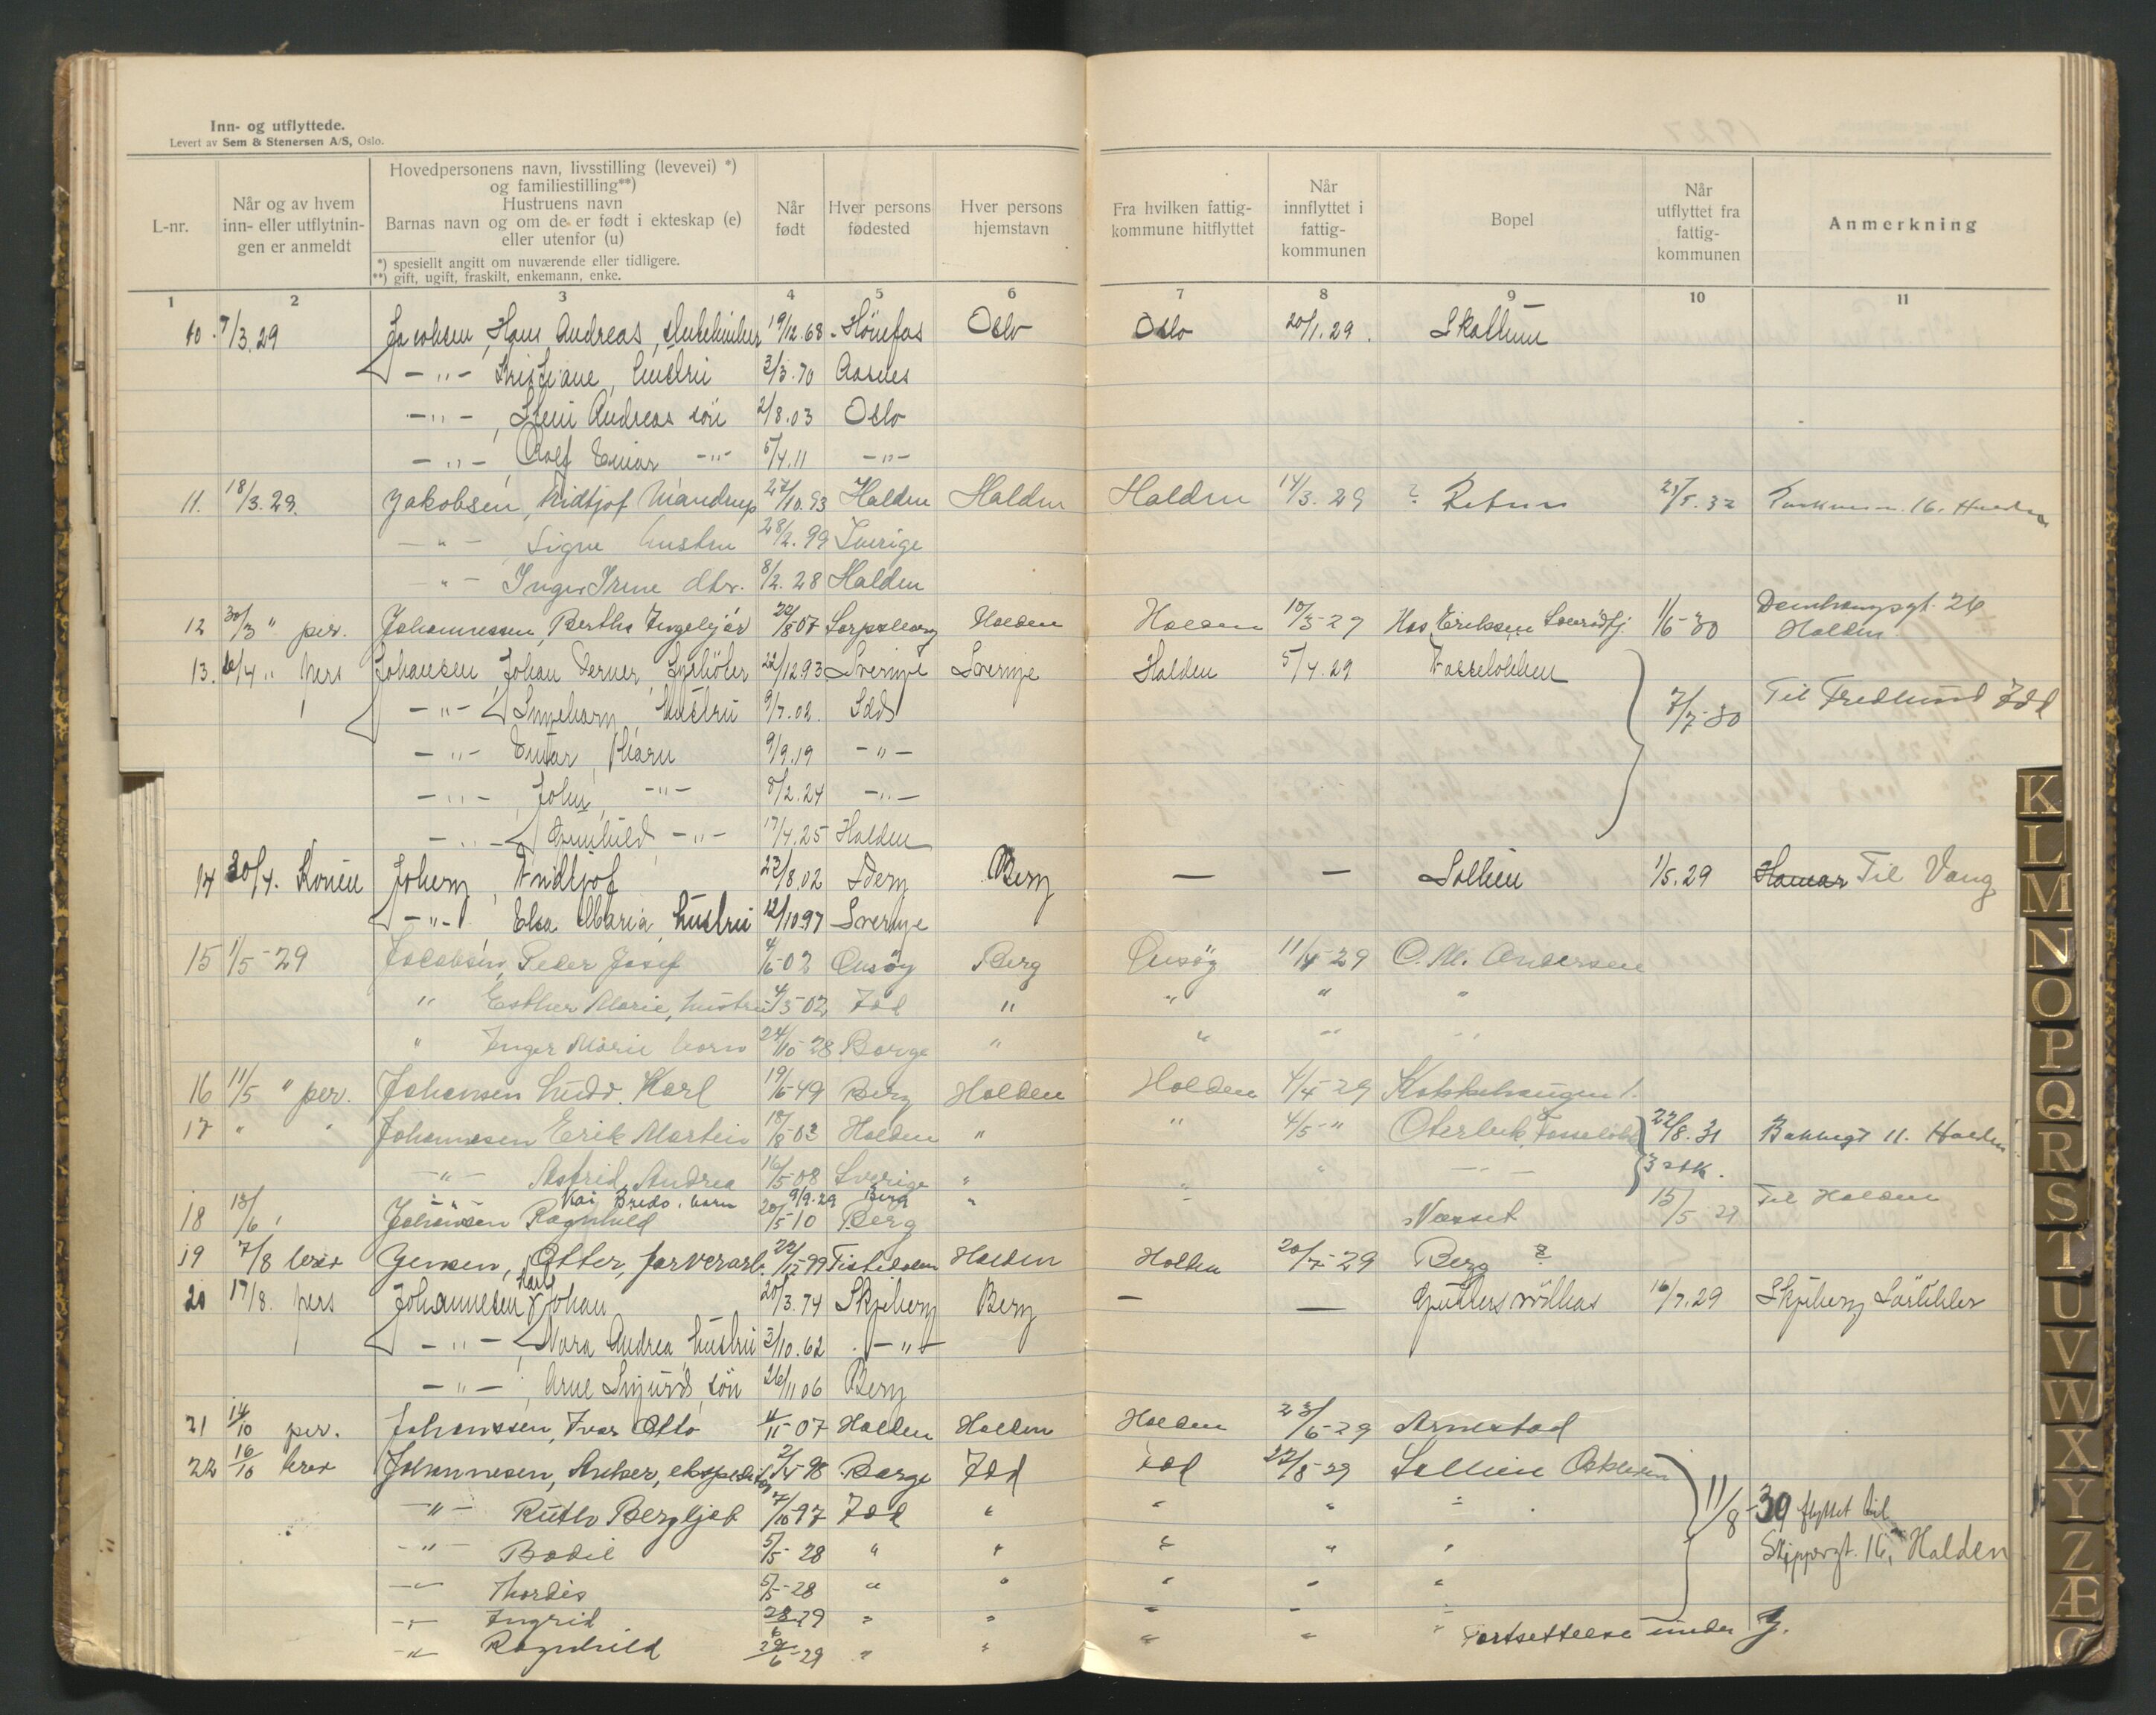 Inn- og utflyttede.
Levert av Sem & Stenersen A/S, Oslo.
L-nr.
Når og av hvem inn- eller utflytnin-gen er anmeldt
Hovedpersonens navn, livsstilling (levevei) *)
og familiestilling**)
Hustruens navn
Barnas navn og om de er født i ekteskap (e)
eller utenfor (u)
*) spesiellt angitt om nuværende eller tidligere.
**) gift, ugift, fraskilt, enkemann, enke.
Når født
Hver persons fødested
Hver persons hjemstavn
Fra hvilken fattig-kommune hitflyttet
Når innflyttet i fattig-kommunen
Bopel
Når utflyttet fra fattig-kommunen
Anmerkning
1 2 3 4 5 6 7 8 9 10 11
10. 7/3.29 Jacobsen, Hans Andreas, 19/12.68 Hönefos Oslo Oslo 20/1.29.
-"- Kristiane, hustru 3/3.70 Aasnes
-"-, Andreas sön 2/8.03 Oslo
-"-, Rolf Einar -"- 5/4.11 -"-
11. 18/3.29. Jakobsen, Fridtjof Mandrup 27/10.93 Halden Halden Halden 14/3.29 ? 16. Halden
-"- Signe hustru 28/2.99 Sverige
-"- Inger Irene dtr. 8/2.28 Halden
12 30/3 " per. Johannessen, Bertha 07 Sarpsborg Halden Halden 10/3-29 Hos Eriksen 1/6-30 26 Halden
13. /4 " pers Johansen, Johan Verner, 22/12.93 Sverige Sverige Halden 5/4.29 7/7-30 Til Fredlund Idd
-"- hustru 9/7.02. Idd
-"- Einar, Barn 9/9.19 -"-
-"-, John, -"- 8/2.24 -"-
-"- -"- 17/4.25 Halden
14 30/4. Konen Joberg, Fridtjof 23/8.02 Berg - - Sollien 1/5.29 Hamar Til Vang
-"- Elsa Maria, hustru 12/10.97 Sverige
15 1/5-29 Jacobsen, Peder Josef 4/6-02 Onsöy Berg Onsöy 11/4-29 O. M. Andersen
" Esther Marie, hustru 4/3-02 Idd " " " "
" Inger Marie barn 24/10-28 Borge " " " "
16 11/5 " per. Johansen Ludv. Karl 19/6-49 Berg Halden Halden 4/4-29
17 " " Johannesen Erik Martin 18/8-03 Halden " " 4/5-" 22/8.31 Bakkegt 11. Halden
-"- Astrid Andrea 16/5-08 Sverige " " " 3 stk.
-"- Kai Bredo, barn 9/9.29 Berg
18 13/6 " Johansen Ragnhild 20/5-10 Berg " " Næsset 15/5-29 Til Halden
19 7/8 brev Jensen, Otter, farverarb. 22/12-99 Tistedalen Halden Halden 20/7-29 Berg ?
20 17/8. pers Johannesen Karl Johan 20/3.74 Skjeberg Berg - - 16/7.29 Skjeberg
-"- Nora Andrea hustru 3/10.62 -"-
-"-, Arne Sigurd, sön 26/11 06 Berg
21 14/10 per. Johanssen, Ivar Otto 4/11-07 Halden Halden Halden 23/6-29 Arnestad
22 16/10 brev Johannesen, Anker, ekspeditör 2/4-98 Borge Idd Idd 22/8-29 Sollien
-"- Ruth Bergljot 7/10-97 Idd " " " "
-"- Bodil 5/5-28 " " " " "
-"- Thordis 5/5-28 " " " " "
-"- Ingrid 29 " " " " "
-"- Ragnhild 29/6-29 " " " " "
11/8-30 flyttet til
Skippergt. 16, Halden
Fortsettelse under J.
K
L
M
N
O
P
Q
R
S
T
U
V
W
X
Y
Z
Æ